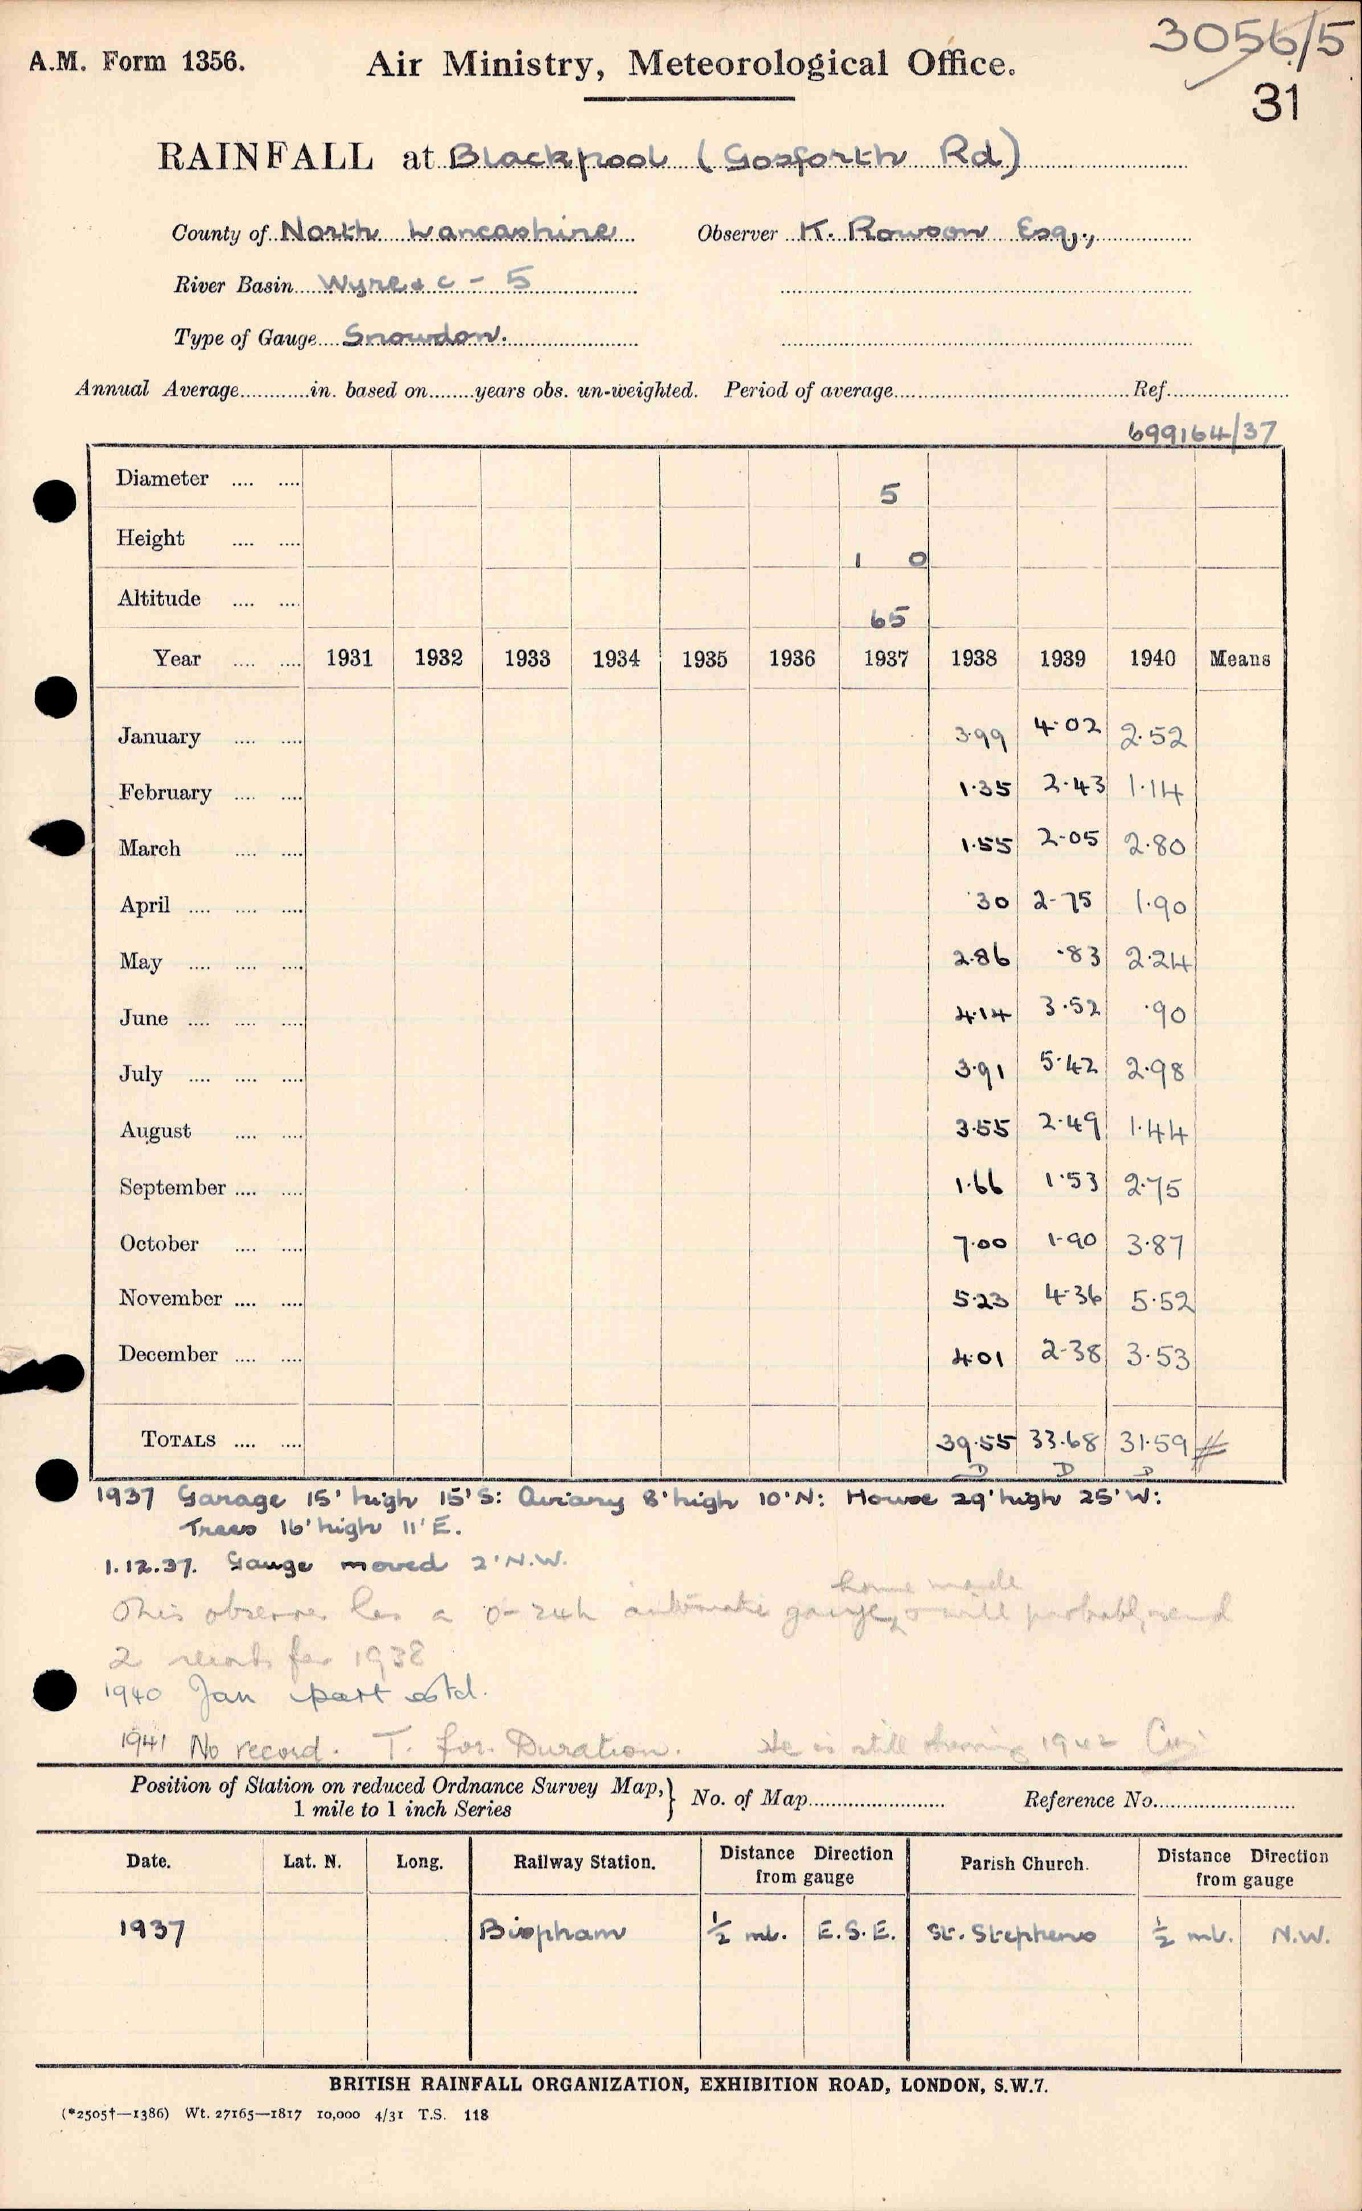 3056/5
A.M. Form 1356. Air Ministry, Meteorological Office.
31
RAINFALL at Blackpool (Gosforth Rd)
County of North Lancashire Observer K. Rowson Esq.,
River Basin Wyre & c - 5
Type of Gauge Snowdon.
Annual Average............in. based on........years obs. un-weighted. Period of average........................................Ref.....................
699164/37
Diameter .... .... 5
Height .... .... 1 0
Altitude .... .... 65
Year .... .... 1931 1932 1933 1934 1935 1936 1937 1938 1939 1940 Means
January .... .... 3.99 4.02 2.52
February .... .... 1.35 2.43 1.14
March .... .... 1.55 2.05 2.80
April .... .... .... .30 2.75 1.90
May .... .... .... 2.86 .83 2.24
June .... .... .... 4.14 3.52 .90
July .... .... .... 3.91 5.42 2.98
August .... .... 3.55 2.49 1.44
September .... .... 1.66 1.53 2.75
October .... .... 7.00 1.90 3.87
November .... .... 5.23 4.36 5.52
December .... .... 4.01 2.38 3.53
TOTALS .... .... 39.55 33.68 31.59 #
D D D
1937 Garage 15' high 15' S: Aviary 8' high 10' N: House 29' high 25' W:
Trees 16' high 11' E.
1.12.37. Gauge moved 2' N.W.
home made
This observer has a 0-24h automatic gauge, & will probably send
2 records for 1938
1940 Jan part estd.
1941 No record. T. for Duration. He is still 1942
Position of Station on reduced Ordnance Survey Map, } No. of Map........................ Reference No.........................
1 mile to 1 inch Series
Date. Lat. N. Long. Railway Station. Distance Direction from gauge Parish Church. Distance Direction from gauge
1937 Bispham ½ ml. E.S.E. St. Stephens ½ ml. N.W.
BRITISH RAINFALL ORGANIZATION, EXHIBITION ROAD, LONDON, S.W.7.
(*2505†—1386) Wt. 27165—1817 10,000 4/31 T.S. 118